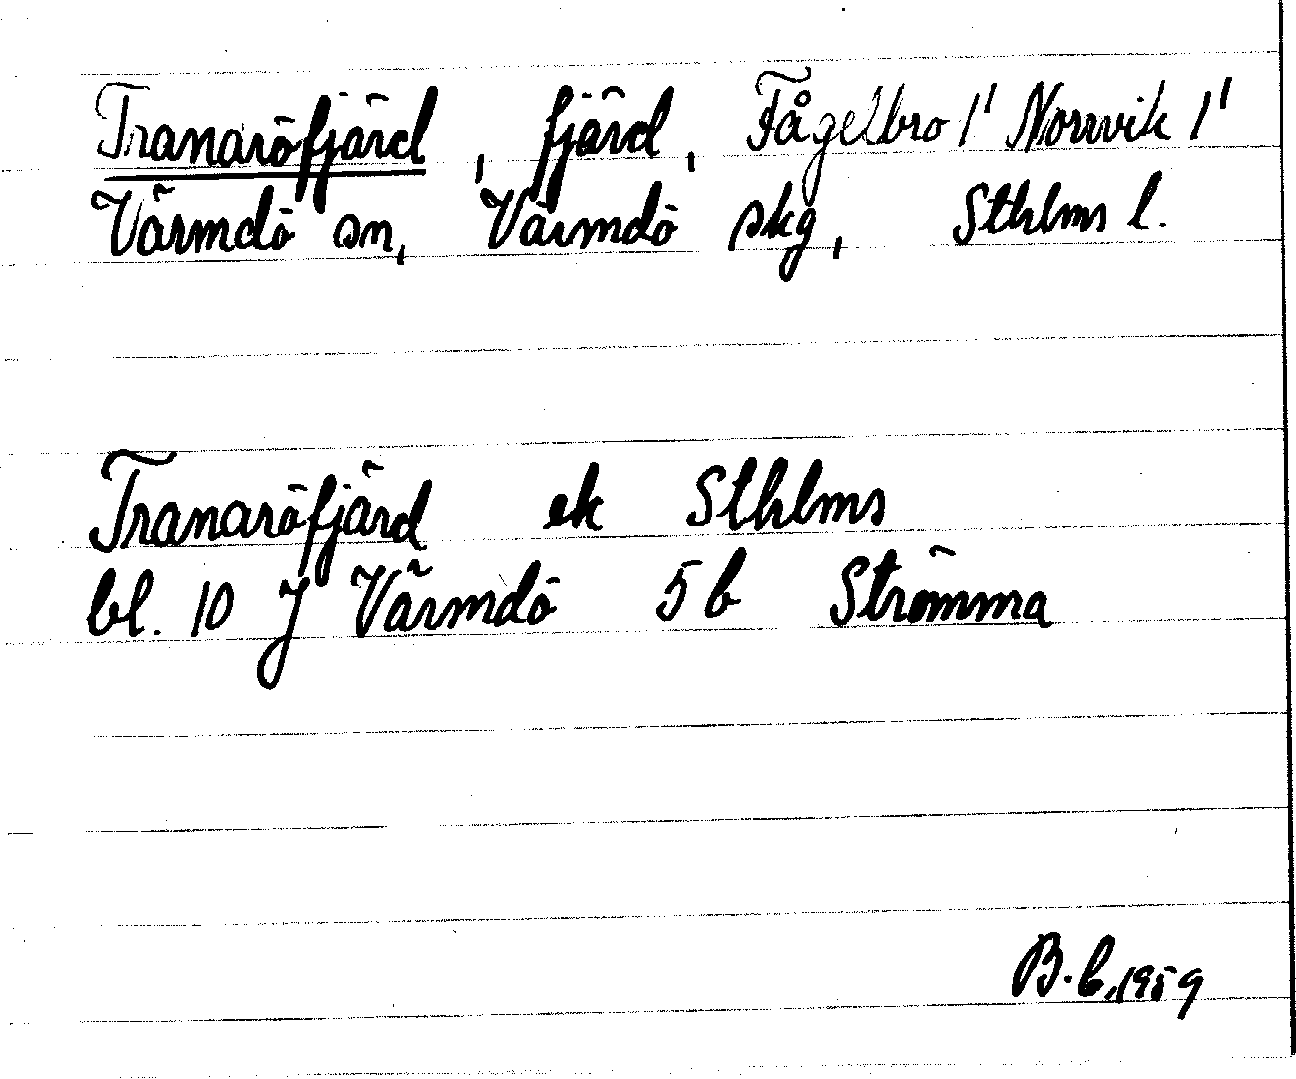 Tranaröfjärd, fjärd, Fågelbro 1' Norrvik 1'
Värmdö sn, Värmdö skg, Sthlms l.
Tranaröfjärd ek Sthlms
bl. 10 J Värmdö 5 b Strömma
B. b. 1959